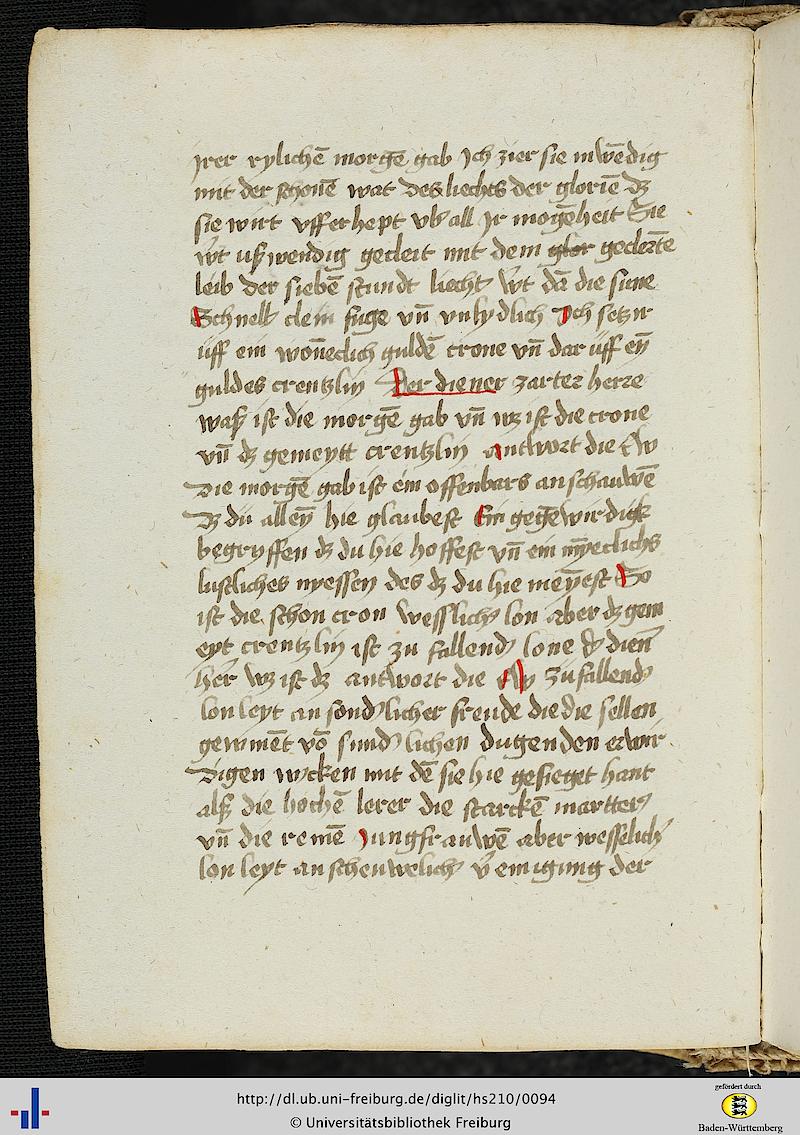 jrer rylichē morgē gab Ich zier sie inwēdig
mit der schonē wat des liechts der gloriē dz
sie wirt ufferhept vb' all Ir mogēheit Sie
wt ußwendig gecleit mit dem glor geclerte
leib der siebē stundt liecht' wt dā die sune
Schnell clein fuge vn̄ vnlydlich Ich setz ir
uff ein won̄eclich guldē crone vn̄ dar uff eȳ
guldes crentzlin Der diener zarter herre
waß ist die morgē gab vn̄ wz ist die crone
vn̄ dz gemeytt crentzlin antwort die Ew
Die morgē gab ist ein offenbars anschauwē
dz du alleȳ hie glaubest Ein gegēwirdigk
begryffen dz du hie hoffest vn̄ ein my̅eclichs
lustliches nyessen des dz du hie meȳest So
ist die schon cron wesslich' lon aber dz gem
eyt crentzlin ist zu fallend' lone d' dien'
her wz ist dz antwort die Ew Zufallend'
lon leyt an sond'licher freude die die sellen
gewinēt vō sund'lichen dugenden erwir
digen wrcken mit dē sie hie gesieget hant
alß die hochē lerer die starckē martter'
vn̄ die reinē Jungfrauwē aber wesselich'
lon leyt an scheuwelich' v'einigung der
http://dl.ub.uni-freiburg.de/diglit/hs210/0094
© Universitätsbibliothek Freiburg
gefördert durch
Baden-Württemberg